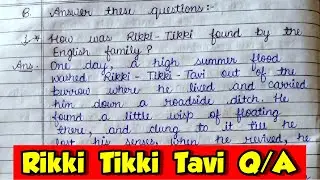 B Answer these questions:-
1* How was Rikki-Tikki found by the
English family?
Ans. One day, a high summer flood
washed Rikki-Tikki-Tavi out of the
burrow where he lived and carried
him down a roadside ditch. He
found a little wisp of floating
there, and clung to it till he
lost his senses, when he revived, he
Rikki Tikki Tavi Q/A